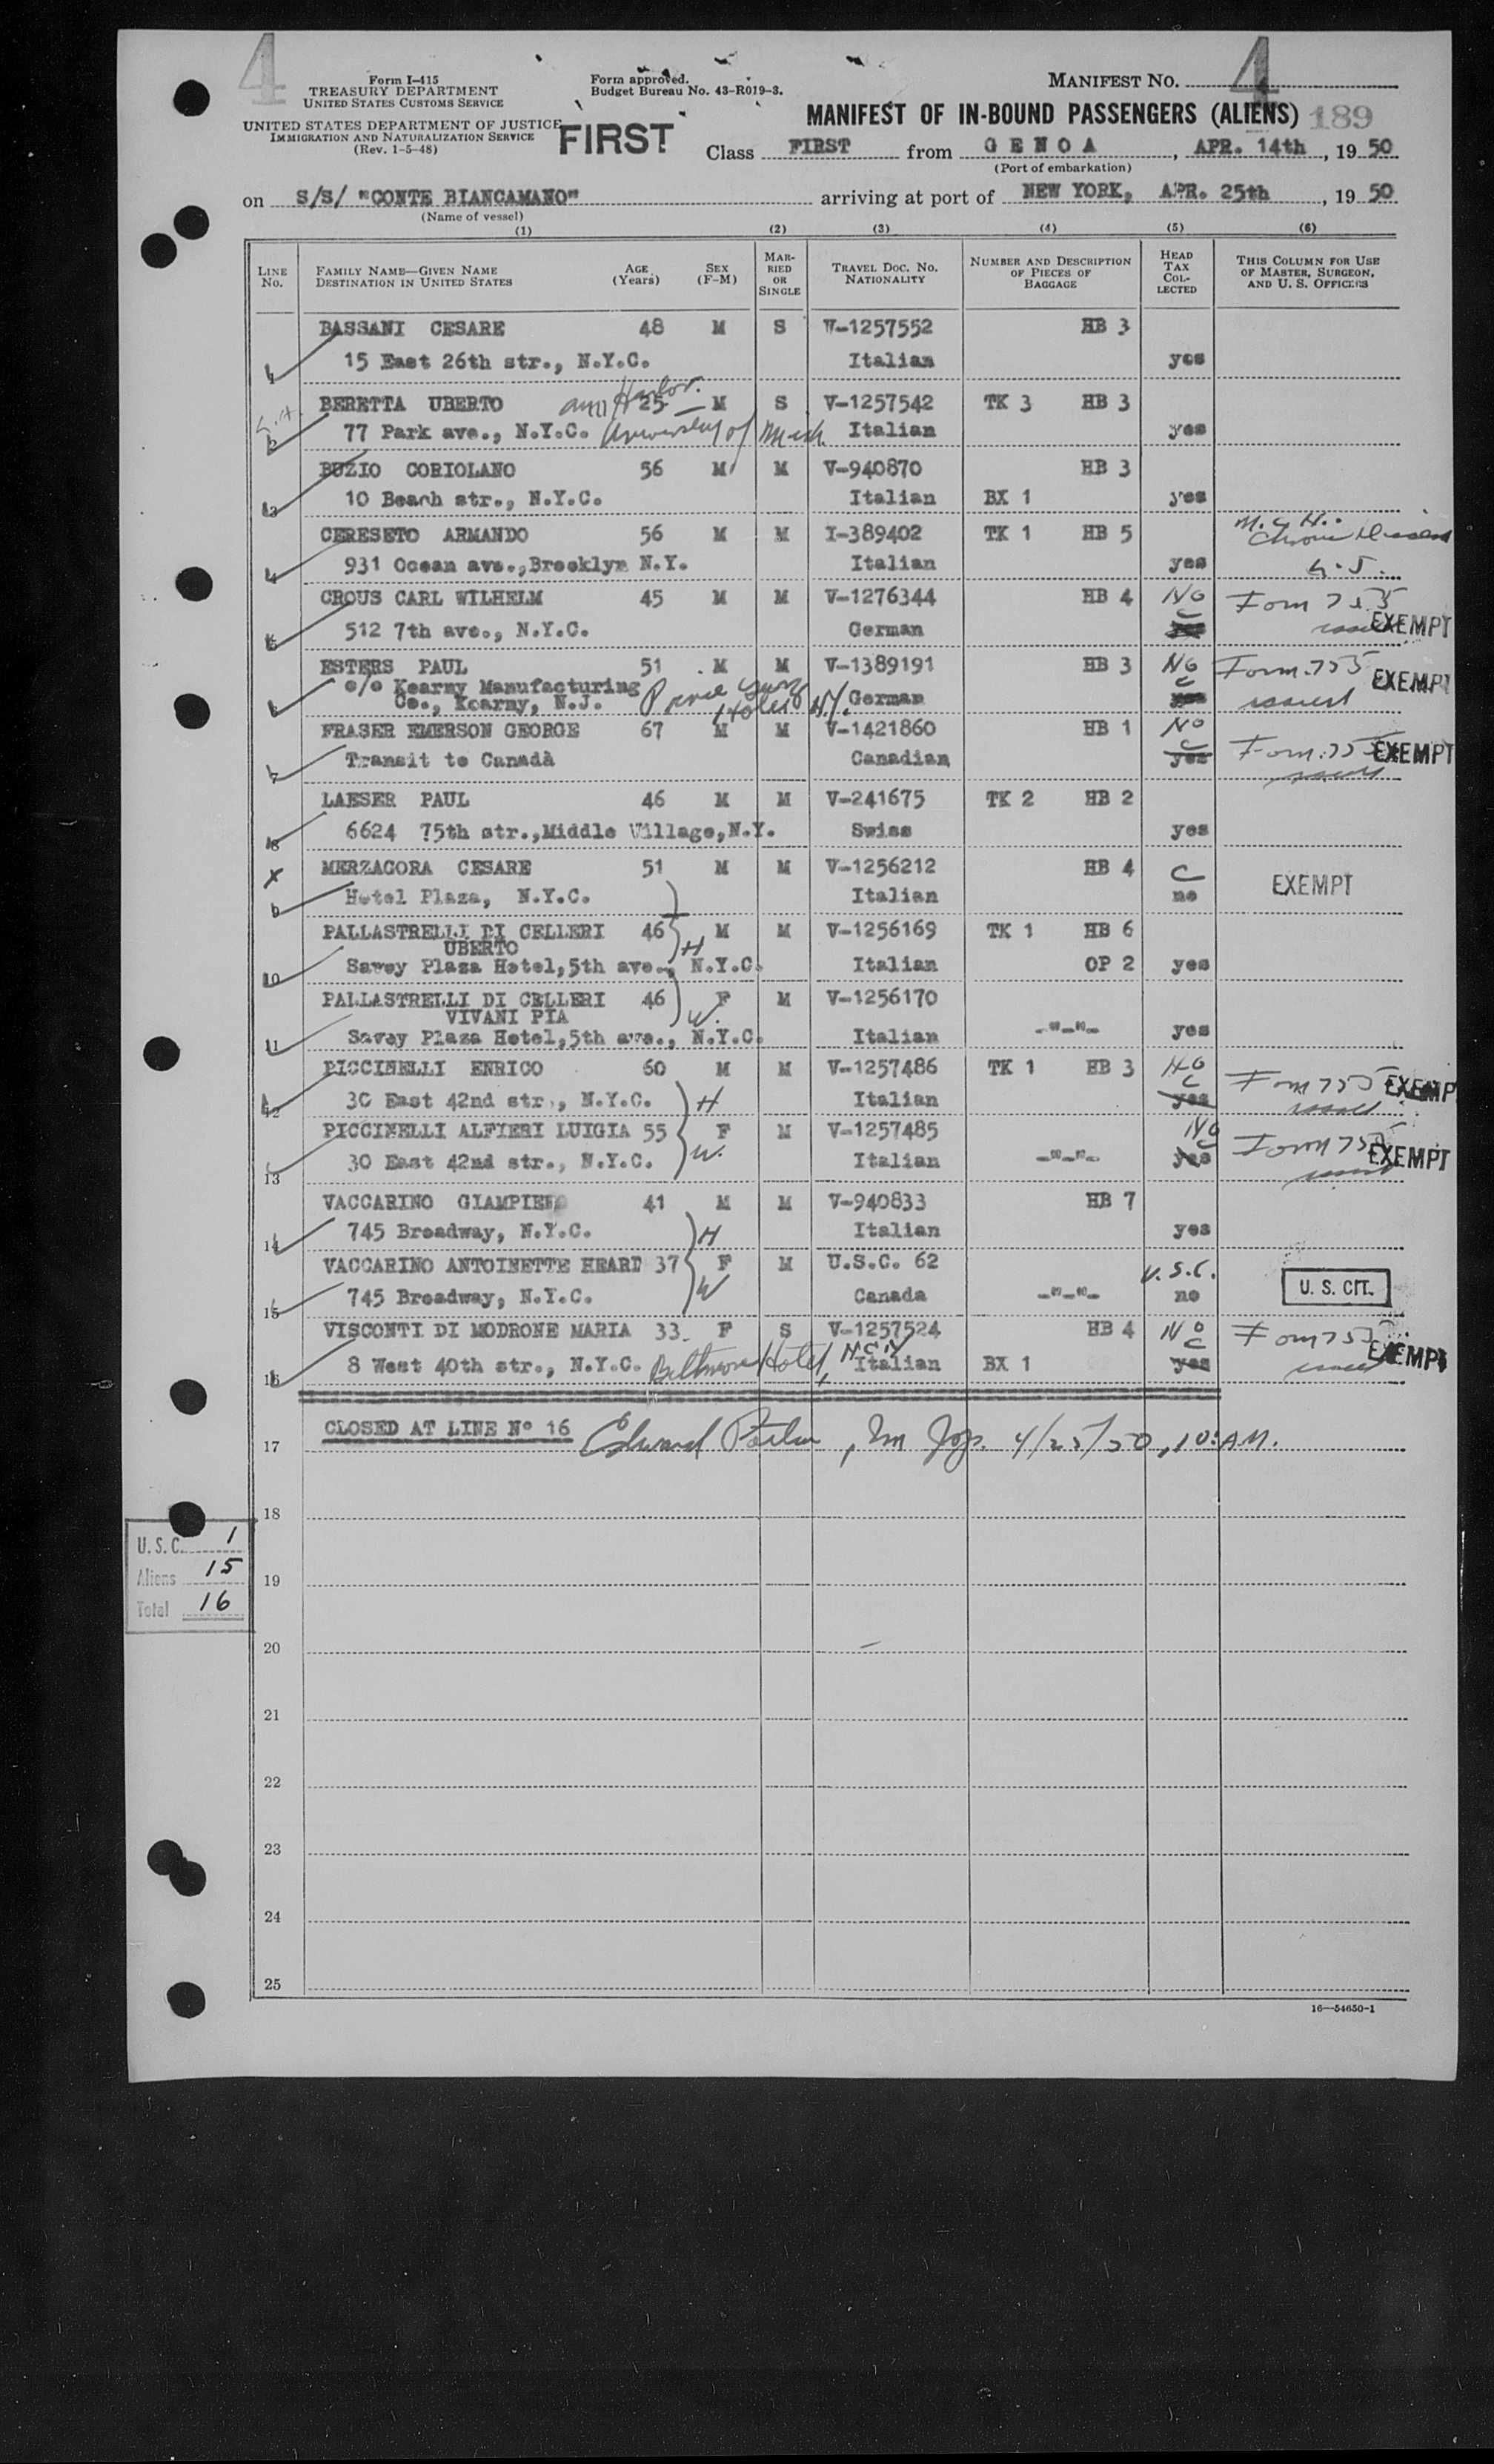 4
4
Form I-415
TREASURY DEPARTMENT
UNITED STATES CUSTOMS SERVICE
UNITED STATES DEPARTMENT OF JUSTICE
IMMIGRATION AND NATURALIZATION SERVICE
(Rev. 1-5-48)
Form approved.
Budget Bureau No. 43-R019-3.
FIRST
MANIFEST NO.
MANIFEST OF IN-BOUND PASSENGERS (ALIENS) 189
Class FIRST from GENOA, APR. 14th, 1950
(Port of embarkation)
on S/S/ "CONTE BIANCAMANO" arriving at port of NEW YORK, APR. 25th, 1950
(Name of vessel)
(1) (2) (3) (4) (5) (6)
LINE NO. FAMILY NAME—GIVEN NAME DESTINATION IN UNITED STATES AGE (Years) SEX (F-M) MARRIED OR SINGLE TRAVEL DOC. NO. NATIONALITY NUMBER AND DESCRIPTION OF PIECES OF BAGGAGE HEAD TAX COLLECTED THIS COLUMN FOR USE OF MASTER, SURGEON, AND U. S. OFFICERS
BASSANI CESARE 48 M S V-1257552 HB 3
1 15 East 26th str., N.Y.C. Italian yes
Ann Harbor.
BERETTA UBERTO 25 M S V-1257542 TK 3 HB 3
2 77 Park ave., N.Y.C. University of Mich Italian yes
BUZIO CORIOLANO 56 M M V-940870 HB 3
3 10 Beach str., N.Y.C. Italian BX 1 yes
CERESETO ARMANDO 56 M M I-389402 TK 1 HB 5
4 931 Ocean ave.,Brooklyn N.Y. Italian yes
CROUS CARL WILHELM 45 M M V-1276344 HB 4 No Form 755
5 512 7th ave., N.Y.C. German c yes issued EXEMPT
ESTERS PAUL 51 M M V-1389191 HB 3 No Form 755 EXEMPT
c/o Kearny Manufacturing
6 Co., Kearny, N.J. N.Y. German c yes issued
FRASER EMERSON GEORGE 67 M M V-1421860 HB 1 No
7 Transit to Canadà Canadian c yes Form 755 EXEMPT issued
LAESER PAUL 46 M M V-241675 TK 2 HB 2
8 6624 75th str.,Middle Village,N.Y. Swiss yes
X MERZAGORA CESARE 51 M M V-1256212 HB 4 C EXEMPT
9 Hotel Plaza, N.Y.C. Italian no
PALLASTRELLI DI CELLERI 46 M M V-1256169 TK 1 HB 6
UBERTO H
10 Savoy Plaza Hotel,5th ave., N.Y.C. Italian OP 2 yes
PALLASTRELLI DI CELLERI 46 F M V-1256170
VIVANI PIA W.
11 Savoy Plaza Hotel,5th ave., N.Y.C. Italian -"-"- yes
PICCINELLI ENRICO 60 M M V-1257486 TK 1 HB 3 No
12 30 East 42nd str., N.Y.C. H Italian c yes Form 755 EXEMPT issued
PICCINELLI ALFIERI LUIGIA 55 F M V-1257485 No
13 30 East 42nd str., N.Y.C. W. Italian -"-"- yes Form 755 EXEMPT issued
VACCARINO GIAMPIERO 41 M M V-940833 HB 7
14 745 Broadway, N.Y.C. H Italian yes
VACCARINO ANTOINETTE HEARD 37 F M U.S.C. 62 U.S.C.
15 745 Broadway, N.Y.C. W Canada -"-"- no U. S. CIT.
VISCONTI DI MODRONE MARIA 33 F S V-1257524 HB 4 No Form 755
16 8 West 40th str., N.Y.C. Biltmore Hotel, Italian BX 1 c yes issued EXEMPT
17 CLOSED AT LINE No 16 Edward, Im Insp. 4/25/50, 10:AM.
18
U. S. C. 1
Aliens 15
Total 16
19
20
21
22
23
24
25
16—54650-1